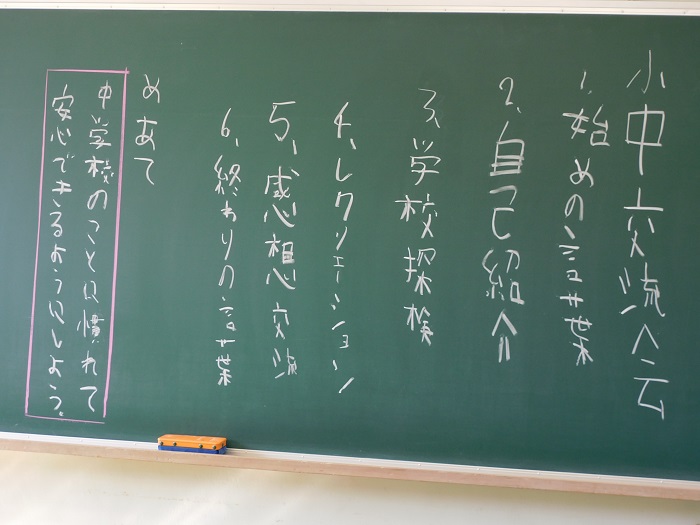 小中交流会
1、始めの言葉
2、自己紹介
3、学校探検
4、レクリエーション
5、感想交流
6、終わりの言葉
めあて
中学校のことに慣れて
安心できるようにしよう。